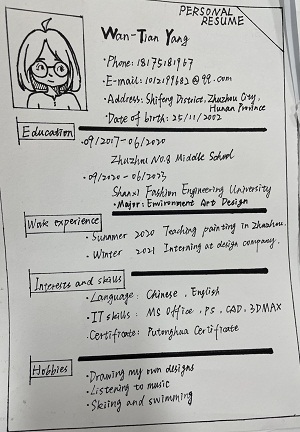 PERSONAL
RESUME
Wan-Tian Yang
·Phone: 18175181967
·E-mail: 1012199682@qq.com
·Address: Shifeng District, Zhuzhou City,
Hunan Province
·Date of birth: 25/11/2002
Education
·09/2017-06/2020
Zhuzhou NO.8 Middle School
·09/2020-06/2023
Shanxi Fashion Engineering University
·Major: Environment Art Design
Work experience
·Summer 2020 Teaching painting in Zhuzhou.
·Winter 2021 Interning at design company.
Interests and skills
·Language: Chinese, English
·IT skills: MS Office, PS, CAD, 3DMAX
·Certificate: Putonghua Certificate
Hobbies
·Drawing my own designs
·Listening to music
·Skiing and swimming